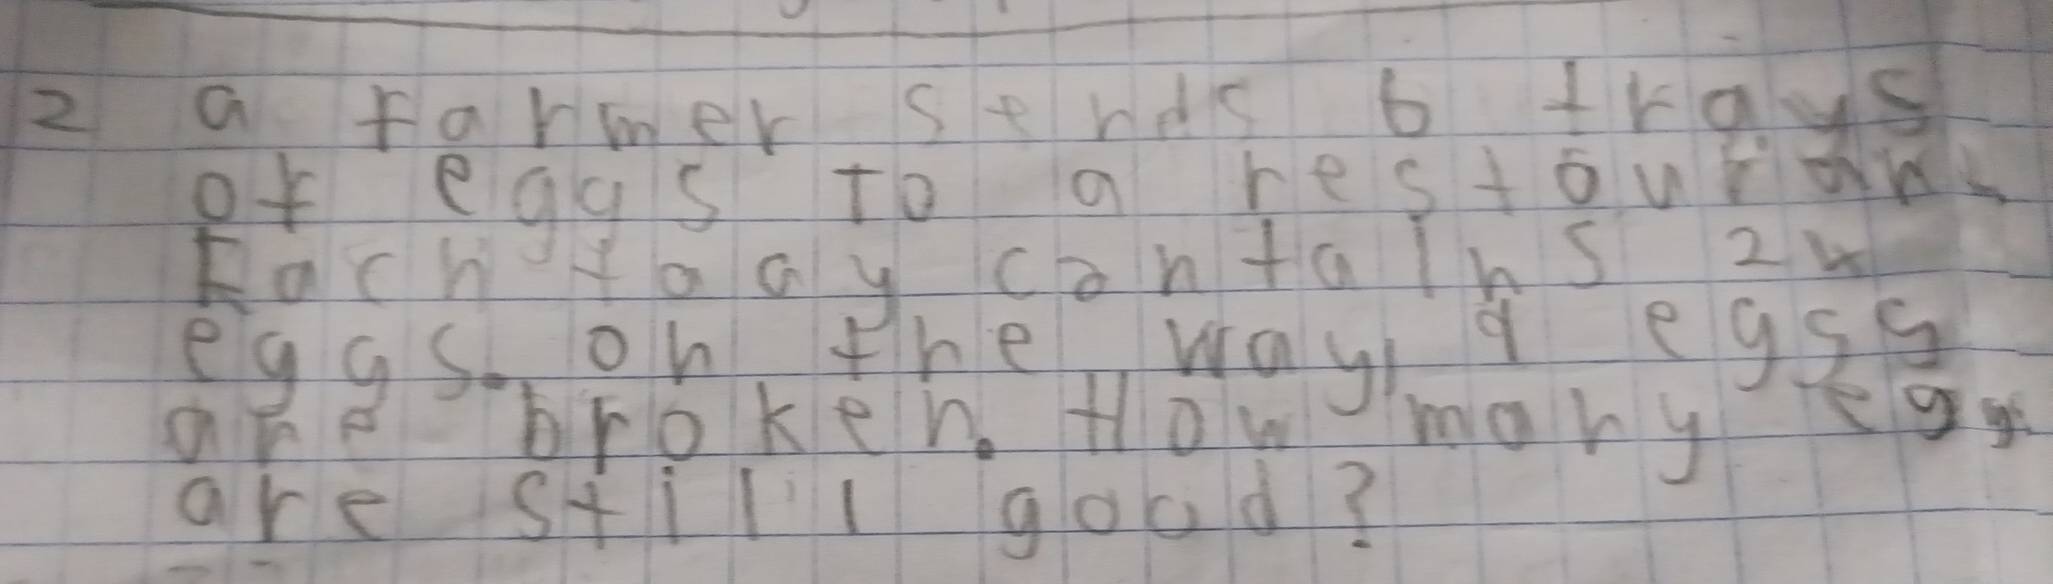 2 a farmer sends 6 trays
of eggs to a restourant
Each taay contains 24
eggs. on the way, 9 eggs
are broken. How many eggs
are still good?